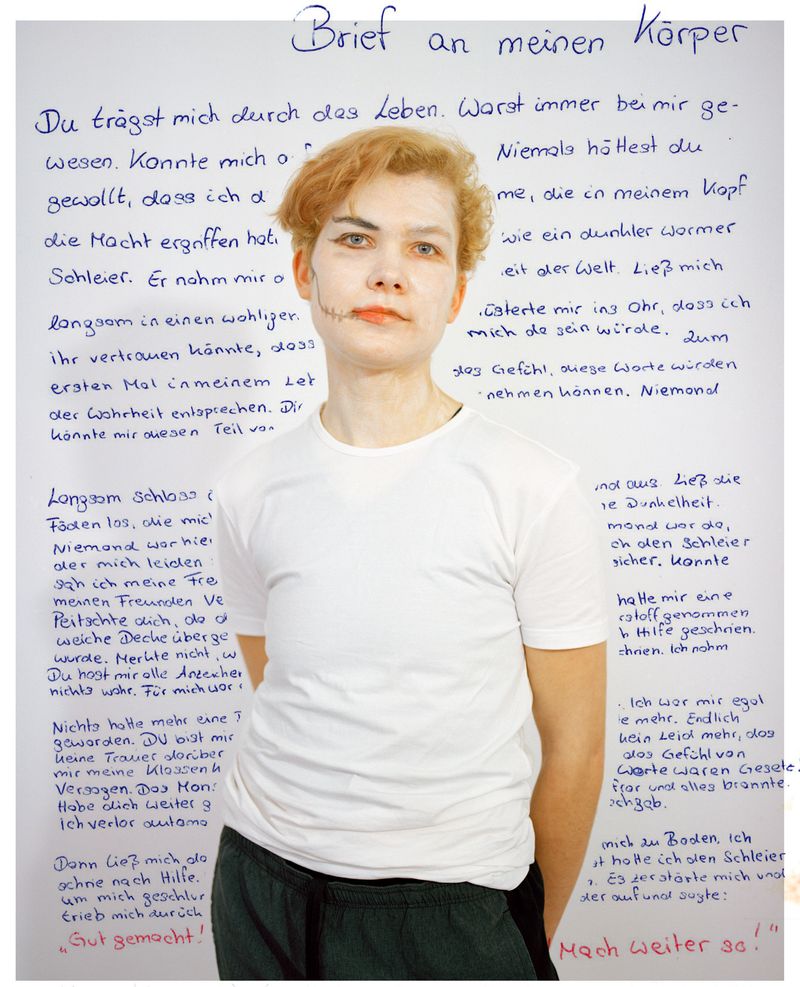 Brief an meinen Körper
Du trägst mich durch das Leben. Warst immer bei mir ge-
wesen. Konnte mich Niemals hättest du
gewollt, dass ich die in meinem Kopf
die Macht ergriffen wie ein dunkler warmer
Schleier. Er nahm mir der Welt. Ließ mich
langsam in einen mir ins Ohr, dass ich
ihr vertrauen könnte, dass mich da sein würde. Zum
ersten Mal in meinem das Gefühl, diese Worte würden
der Wahrheit entsprechen. nehmen können. Niemand
könnte mir diesen Teil
Langsam schloss aus. Ließ die
Fäden los, die Dunkelheit.
Niemand war hier war da,
der mich leiden den Schleier
sah ich meine sicher. Konnte
meinen Freunden hatte mir eine
Peitschte dich, da genommen
weiche Decke Hilfe geschrien.
wurde. Merkte nicht, Ich nahm
Du hast mir alle
nichts wahr. Für mich war
Nichts hatte mehr eine Ich war mir egal
geworden. DU bist mir mehr. Endlich
keine Trauer darüber kein Leid mehr, das
mir meine das Gefühl von
Versagen. Das Worte waren Gesetz
Habe dich weiter und alles brannte.
ich verlor
Dann ließ mich mich zu Boden. Ich
schrie nach Hilfe. hatte ich den Schleier
um mich Es zerstörte mich und
trieb mich durch auf und sagte:
„Gut gemacht! Mach weiter so!"